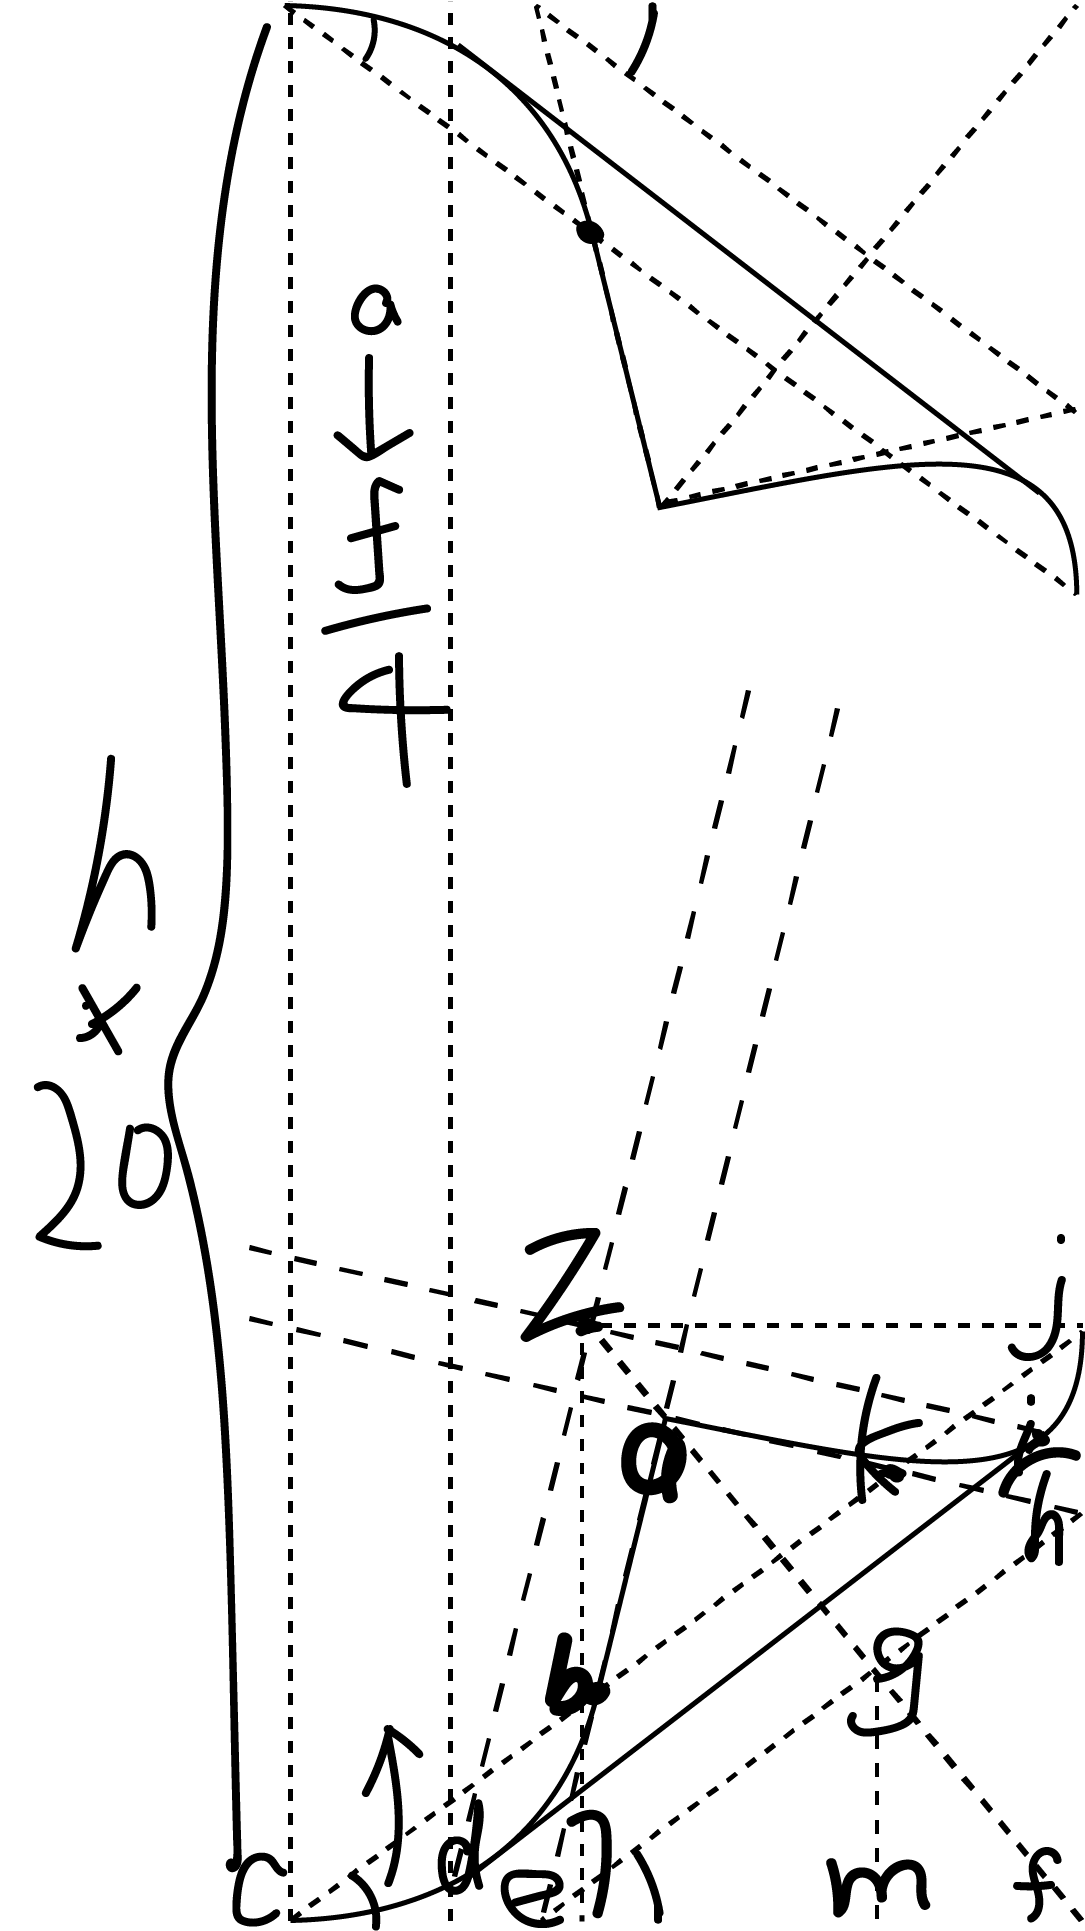 a
4
h
x
20
Z
j
a
k
i
h
b
g
c
d
e
m
f